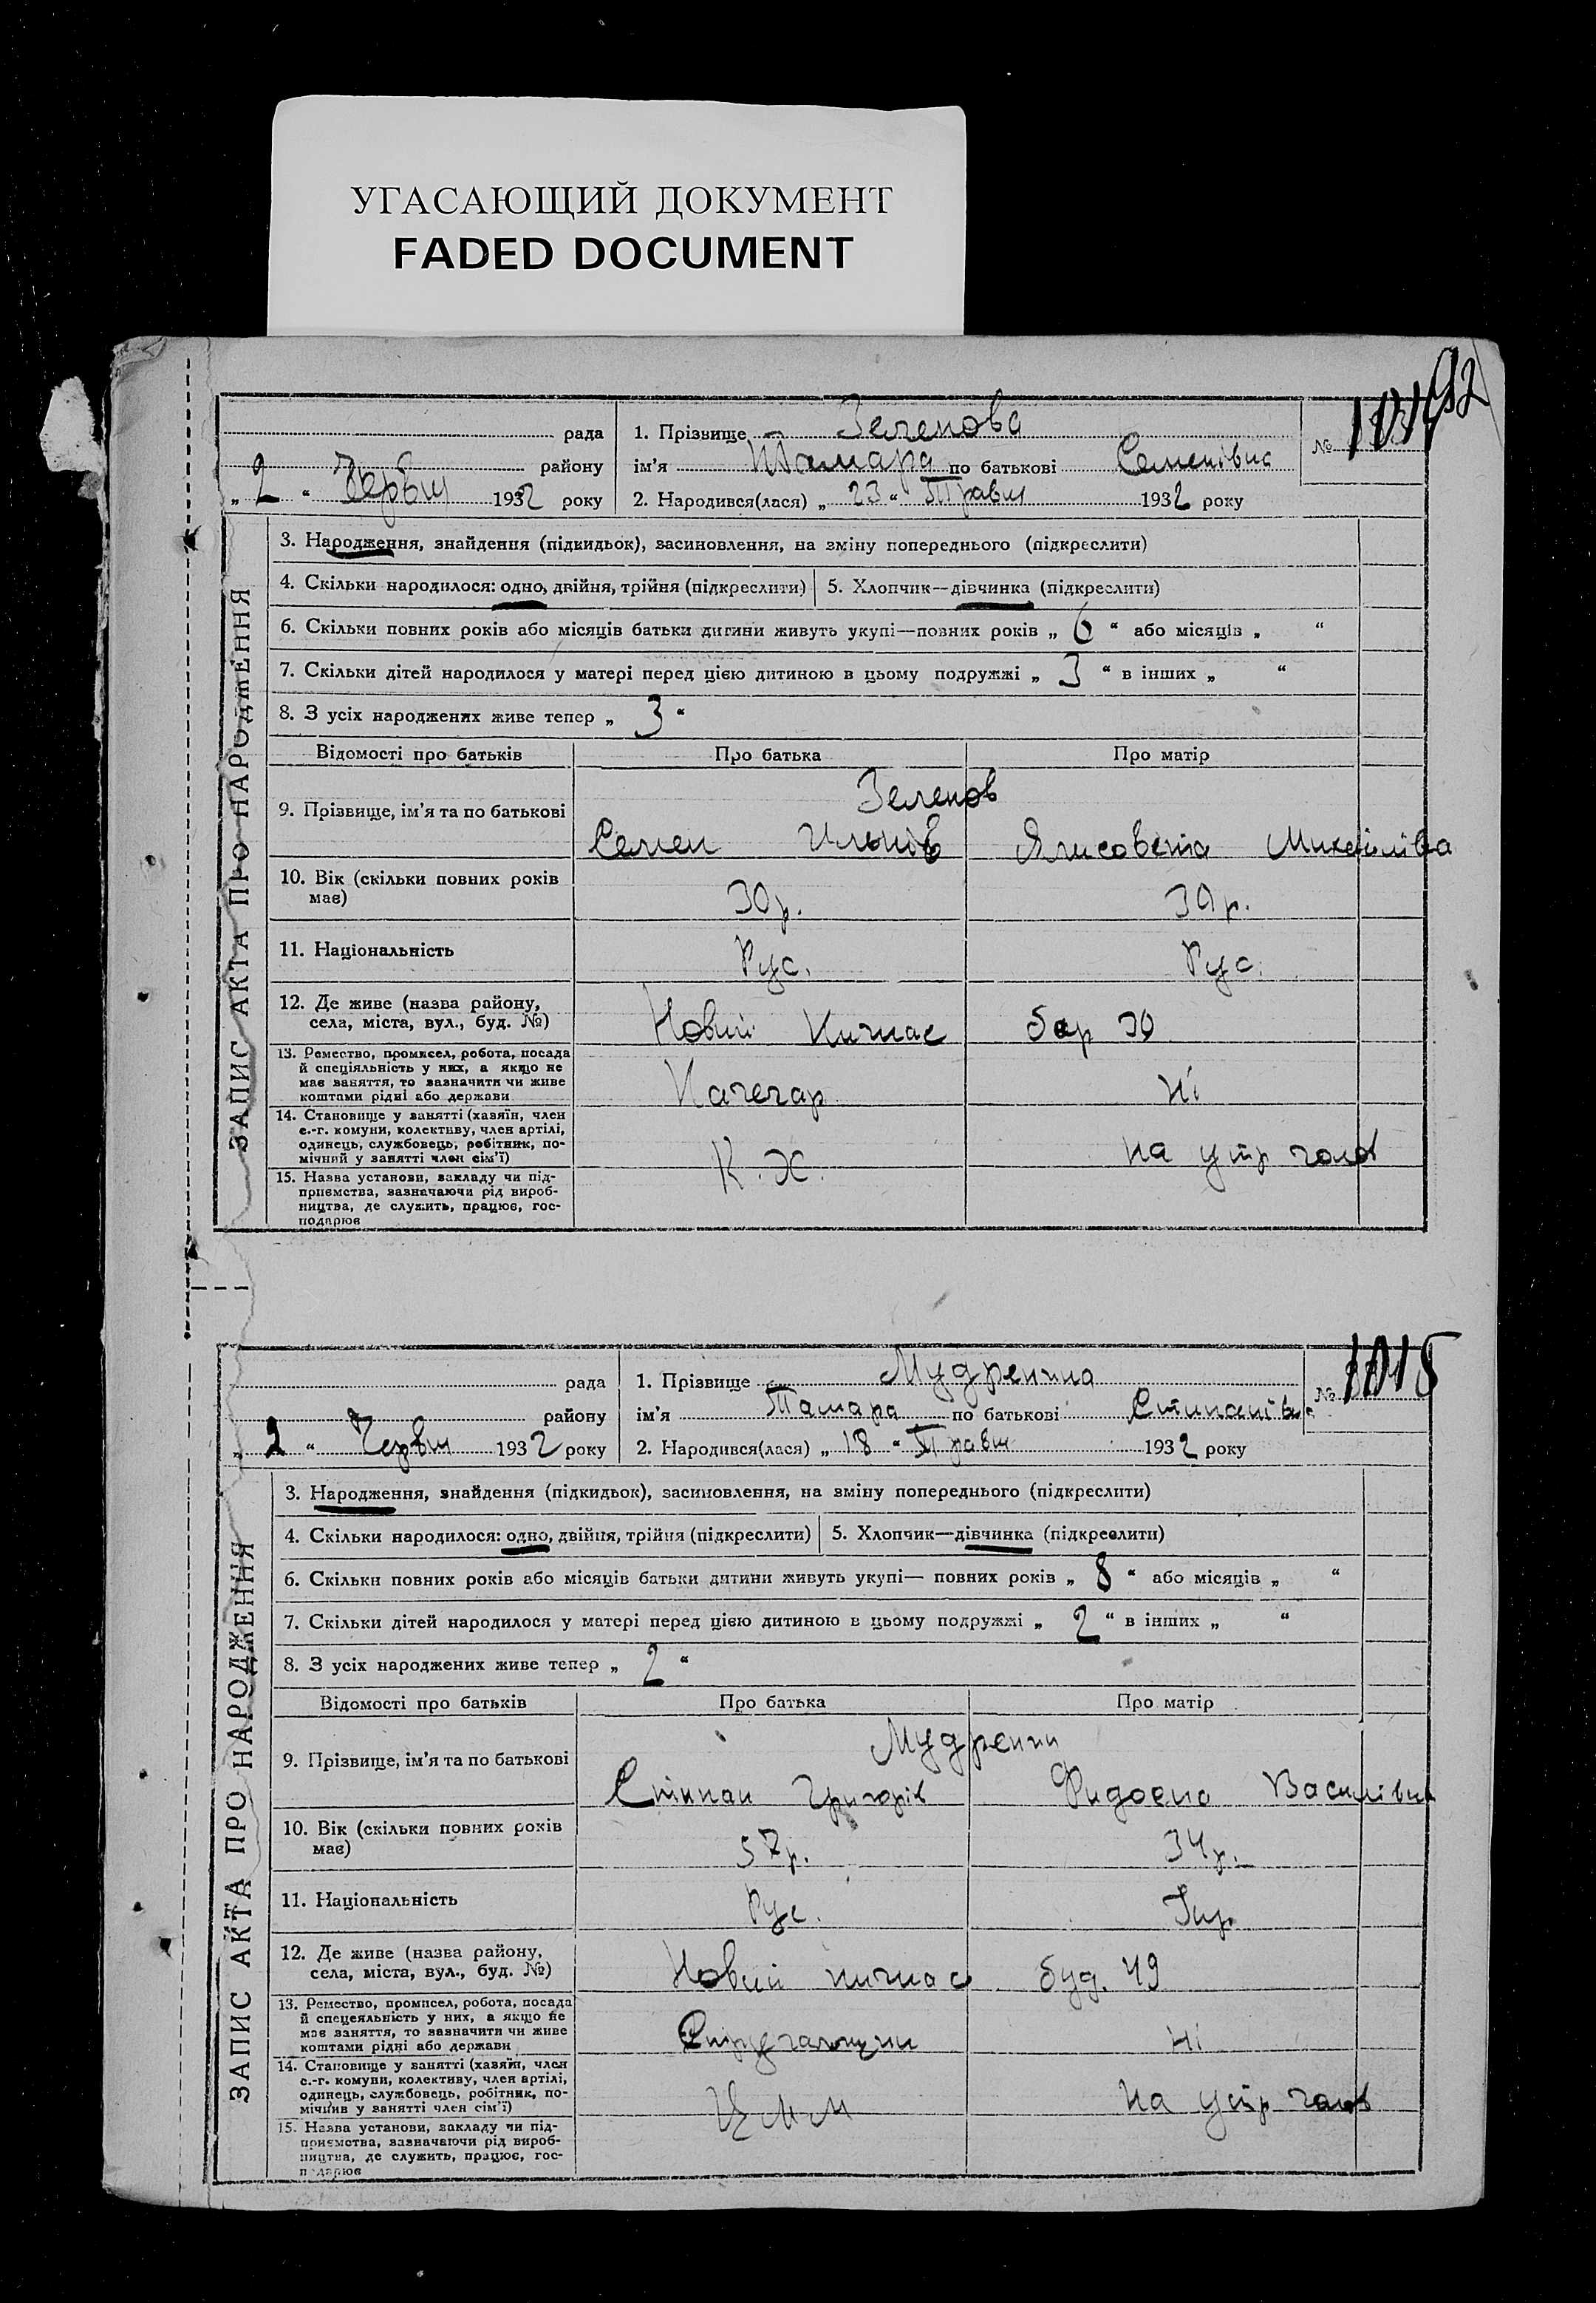 УГАСАЮЩИЙ ДОКУМЕНТ
FADED DOCUMENT
92
рада
району
„ 2 “ Червн 1932 року
1. Прізвище Зеленова
ім'я Тамара по батькові Семенівна
2. Народився(лася) „ 23 “ Травн 1932 року
№
ЗАПИС АКТА ПРО НАРОДЖЕННЯ
3. Народження, знайдення (підкидьок), засиновлення, на зміну попереднього (підкреслити)
4. Скільки народилося: одно, двійня, трійня (підкреслити)
5. Хлопчик—дівчинка (підкреслити)
6. Скільки повних років або місяців батьки дитини живуть укупі—повних років „ 6 “ або місяців „ “
7. Скільки дітей народилося у матері перед цією дитиною в цьому подружжі „ 3 “ в інших „ “
8. З усіх народжених живе тепер „ 3 “
Відомості про батьків
Про батька
Про матір
9. Прізвище, ім'я та по батькові
Зеленов
Семен
10. Вік (скільки повних років
має)
30р.
11. Національність
Рус.
Рус.
12. Де живе (назва району,
села, міста, вул., буд. №)
Новий Кичкас бар 30
13. Ремество, промисел, робота, посада
й спеціяльність у них, а якщо не
має заняття, то зазначити чи живе
коштами рідні або держави
Качегар
Ні
14. Становище у занятті (хазяїн, член
с.-г. комуни, колективу, член артілі,
одинець, службовець, робітник, по-
мічний у занятті член сім'ї)
К. Х.
на утр чолов
15. Назва установи, закладу чи під-
приємства, зазначаючи рід вироб-
ництва, де служить, працює, гос-
подарює
рада
району
„ 2 “ Червн 1932 року
1. Прізвище
ім'я Тамара по батькові
2. Народився(лася) „ 18 “ Травн 1932 року
№ 1015
ЗАПИС АКТА ПРО НАРОДЖЕННЯ
3. Народження, знайдення (підкидьок), засиновлення, на зміну попереднього (підкреслити)
4. Скільки народилося: одно, двійня, трійня (підкреслити)
5. Хлопчик—дівчинка (підкреслити)
6. Скільки повних років або місяців батьки дитини живуть укупі— повних років „ 8 “ або місяців „ “
7. Скільки дітей народилося у матері перед цією дитиною в цьому подружжі „ 2 “ в інших „ “
8. З усіх народжених живе тепер „ 2 “
Відомості про батьків
Про батька
Про матір
9. Прізвище, ім'я та по батькові
Григорів
Василівна
10. Вік (скільки повних років
має)
34р.
11. Національність
Рус.
Укр.
12. Де живе (назва району,
села, міста, вул., буд. №)
Новий кичкас буд. 49
13. Ремество, промисел, робота, посада
й спецеяльність у них, а якщо не
має заняття, то зазначити чи живе
коштами рідні або держави
Ні
14. Становище у занятті (хазяїн, член
с.-г. комуни, колективу, член артілі,
одинець, службовець, робітник, по-
мічнив у занятті член сім'ї)
ЦММ
на утр чолов
15. Назва установи, закладу чи під-
приємства, зазначаючи рід вироб-
ництва, де служить, працює, гос-
подарює